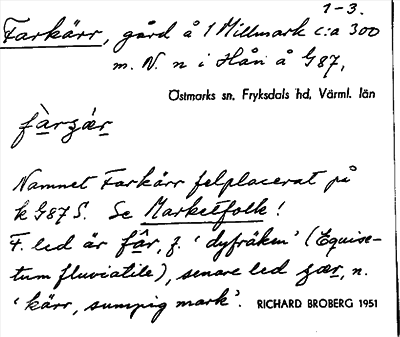 1-3.
Farkärr, gård å 1 Millmark c:a 300
m. N. n i Hån å G87,
Östmarks sn, Fryksdals hd, Värml. län
fàrʒǽr
Namnet Farkärr felplacerat på
k G87 S. Se Marketfolk!
F. led är fâr, f. 'dyfräken' (Equise-
tum fluviatile), senare led ʒær, n.
'kärr, sumpig mark'. RICHARD BROBERG 1951